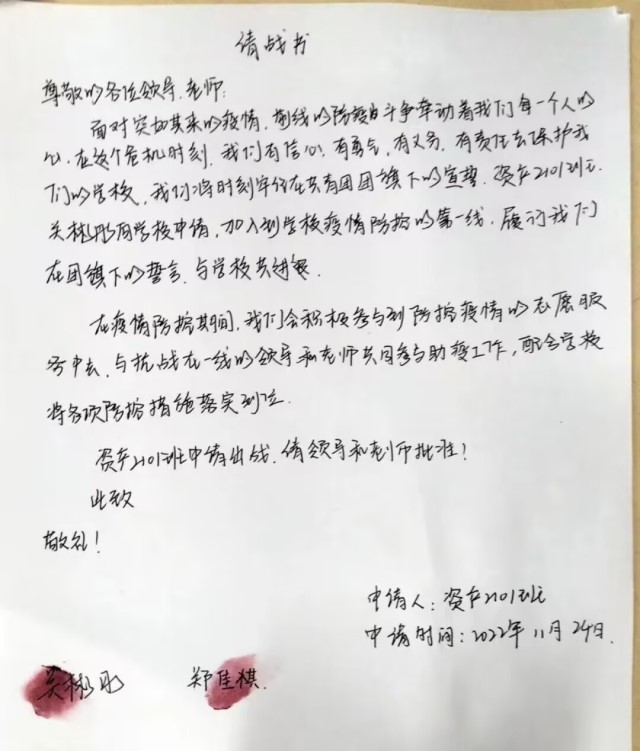 请战书
尊敬的各位领导、老师:
面对突如其来的疫情,前线的防疫斗争牵动着我们每一个人的
心,在这个危机时刻,我们有信心,有勇气,有义务,有责任去保护我
们的学校,我们将时刻牢记在共青团团旗下的宣誓,资产2101班
向学校申请,加入到学校疫情防控的第一线,履行我们
在团旗下的誓言,与学校共进退.
在疫情防控期间,我们会积极参与到防控疫情的志愿服
务中去,与抗战在一线的领导和老师共同参与助疫工作,配合学校
将各项防控措施落实到位.
资产2101班申请出战,请领导和老师批准!
此致
敬礼!
申请人:资产2101班
申请时间:2022年11月24日.
吴彬彤 郑佳棋.